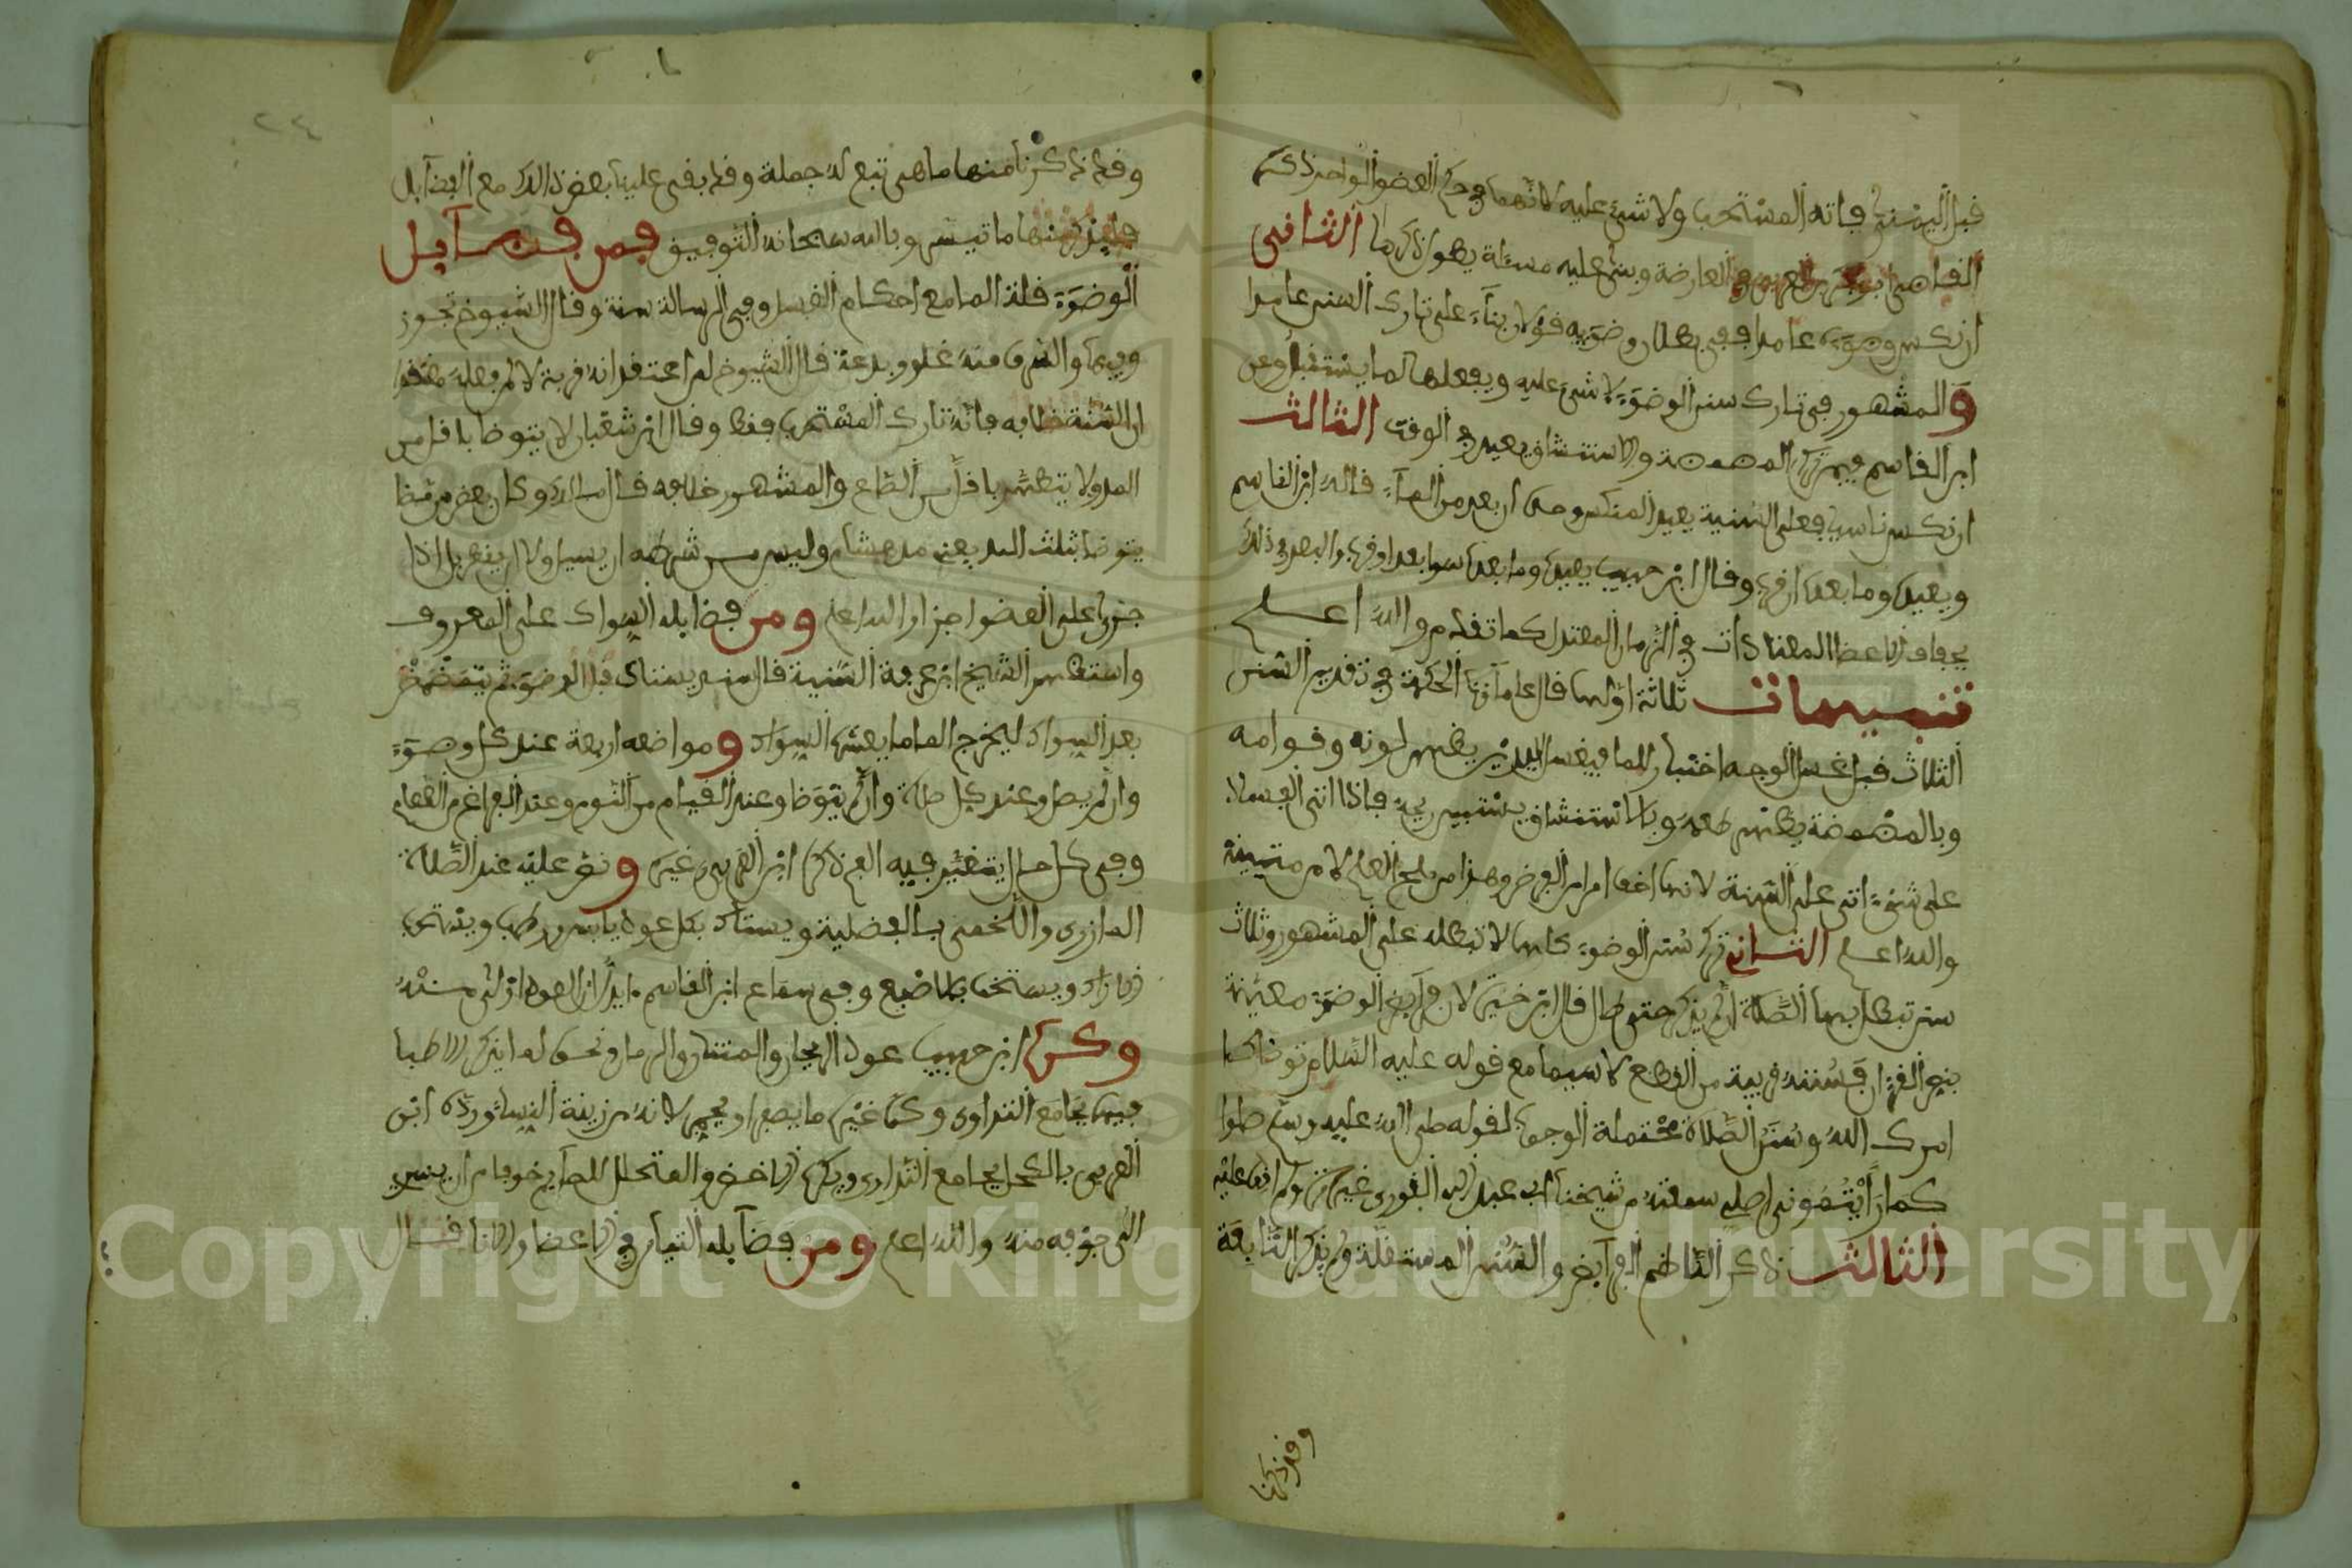 قبل اليمنى فاته المستحب ولا شيء عليه لانهما في حكم العضو الواحد ذكره
القاضي ابو بكر بن العربي في العارضة وبنى عليه مسئلة يطول ذكرها الثاني
ان نكس وضوءه عامدا ففي بطلان وضوئه قولان بناء على تارك السنن عامدا
والمشهور في تارك سنن الوضوء لا شيء عليه ويفعلها لما يستقبل وعن
ابن القاسم فيمن ترك المضمضة والاستنشاق يعيد في الوقت الثالث
ان نكس ناسيا فعلى السنية يعيد المنكس وحده ان بعد من الماء قاله ابن القاسم
ويعيده وما بعده ان قرب وقال ابن حبيب يعيده وما بعده سوا بعد او قرب والبعد في ذلك
بجفاف الاعضا المعتادات في الزمان المعتدل كما تقدم والله اعلم
تنبيهات ثلاثة اولها قال علماؤنا الحكمة في تقديم السنن
الثلاث قبل غسل الوجه اختبار للما فبغسل اليدين يظهر لونه وقوامه
وبالمضمضة يظهر طعمه وبالاستنشاق يستبين ريحه فاذا اتى الغسل لا
على شيء اتى على السنة لانها اخف امرا من الفرض وهذا من مليح العلم لا من متينه
والله اعلم الثاني ترك سنن الوضوء كلها لا تبطله على المشهور وثلاث
سنن تبطل بها الصلاة ان لم يذكر حتى طال قال ابن خيرة لان فرايض الوضوء معينة
بنص القرءان فسننه قريبة من القطع لا سيما مع قوله عليه السلام توضا كما
امرك الله وسنن الصلاة محتملة الوجوب لقوله صلى الله عليه وسلم صلوا
كما رأيتموني اصلي سمعته من شيخنا ابي عبد الله القوري غير مرة ولم اقف عليه
الثالث ذكر الناظم الفرايض والسنن المستقلة ولم يذكر التابعة
وقد ذكرنا
وقد ذكرنا منها ما هي تبع له جملة وقد بقي علينا بعض ذلك مع الفضايل
فلنذكر منها ما تيسر وبالله سبحانه التوفيق فمن فضايل
الوضوء قلة الما مع احكام الغسل وفي الرسالة سنة وقال الشيوخ تجوز
فيها والسرف منه غلو وبدعة قال الشيوخ لمن اعتقد انه قربة لا لم فعله معتقدا
ان السنة خلافه فانه تارك المستحب فقط وقال ابن شعبان لا يتوضا باقل من
المد ولا يتطهر باقل من الصاع والمشهور خلافه قال مالك وكان بعض من مضا
يتوضا بثلث المد يعني مد هشام وليس من شرطه ان يسيل ولا ان يقطر بل اذا
جرى على العضو اجزا والله اعلم ومن فضايله السواك على المعروف
واستظهر الشيخ ابن عرفة السنية قال يستاك قبل الوضوء ثم يتمضمض
بعد السواك ليخرج الما ما يعشه السواك ومواضعه اربعة عند كل وضوء
وان لم يصل وعند كل صلاة وان لم يتوضا وعند القيام من النوم وعند الفراغ من الطعام
وفي كل حال يتغير فيه الفم ذكره ابن العربي وغيره ونص عليه عند الصلاة
المازري واللخمي بالفضيلة ويستاك بكل عود يابس ورطب ويستحب
الاراك ويستحب بالاصبع وفي سماع ابن القاسم ان العود اولى منه
وكره ابن حبيب عود الريحان والرمان
فيها بجامع التداوي وكره غيره ما يصبغ او يحمر لانه من زينة النسا ورده ابن
العربي بالكحل بجامع التداوي ويكره الاخضر والمتحلل للصايم خوفا من ان يسري
الى جوفه منه والله اعلم ومن فضايله التيامن في الاعضا والانا قال
٢٤